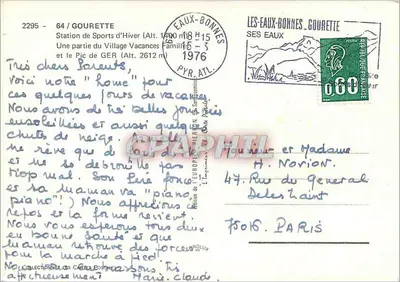 2295 - 64 / GOURETTE
Station de Sports d'Hiver (Alt. 1400 m)
Une partie du Village Vacances Famille
et le Pic de GER (Alt. 2612 m)
64 EAUX-BONNES
18H15
15-3
1976
PYR. ATL.
LES-EAUX-BONNES_GOURETTE
SES EAUX
0,60
Très chers Parents,
Voici notre "home" pour
ces quelques jours de vacances.
Nous avons de très belles journées
ensoleillées et aussi quelques
chutes de neige.
ne rêve que de
et ne se débrouille pas
trop mal. Son
et sa maman va "piano,
piano"!) Nous apprécions ce
repos et la forme revient.
Nous vous espérons tous deux
en bonne santé et que
Maman retrouve des forces
pour la marche à pied.
Nous vous embrassons très
affectueusement Marie-Claude
Monsieur et Madame
H. Novion
47 Rue du General
Delestraint
75016 PARIS
DELCAMPAGNE